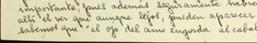 importante, pués además seguramente habrá
allí el ver que aunque lejos, pueden aparecer
sabemos que "el ojo del amo engorda al cabal